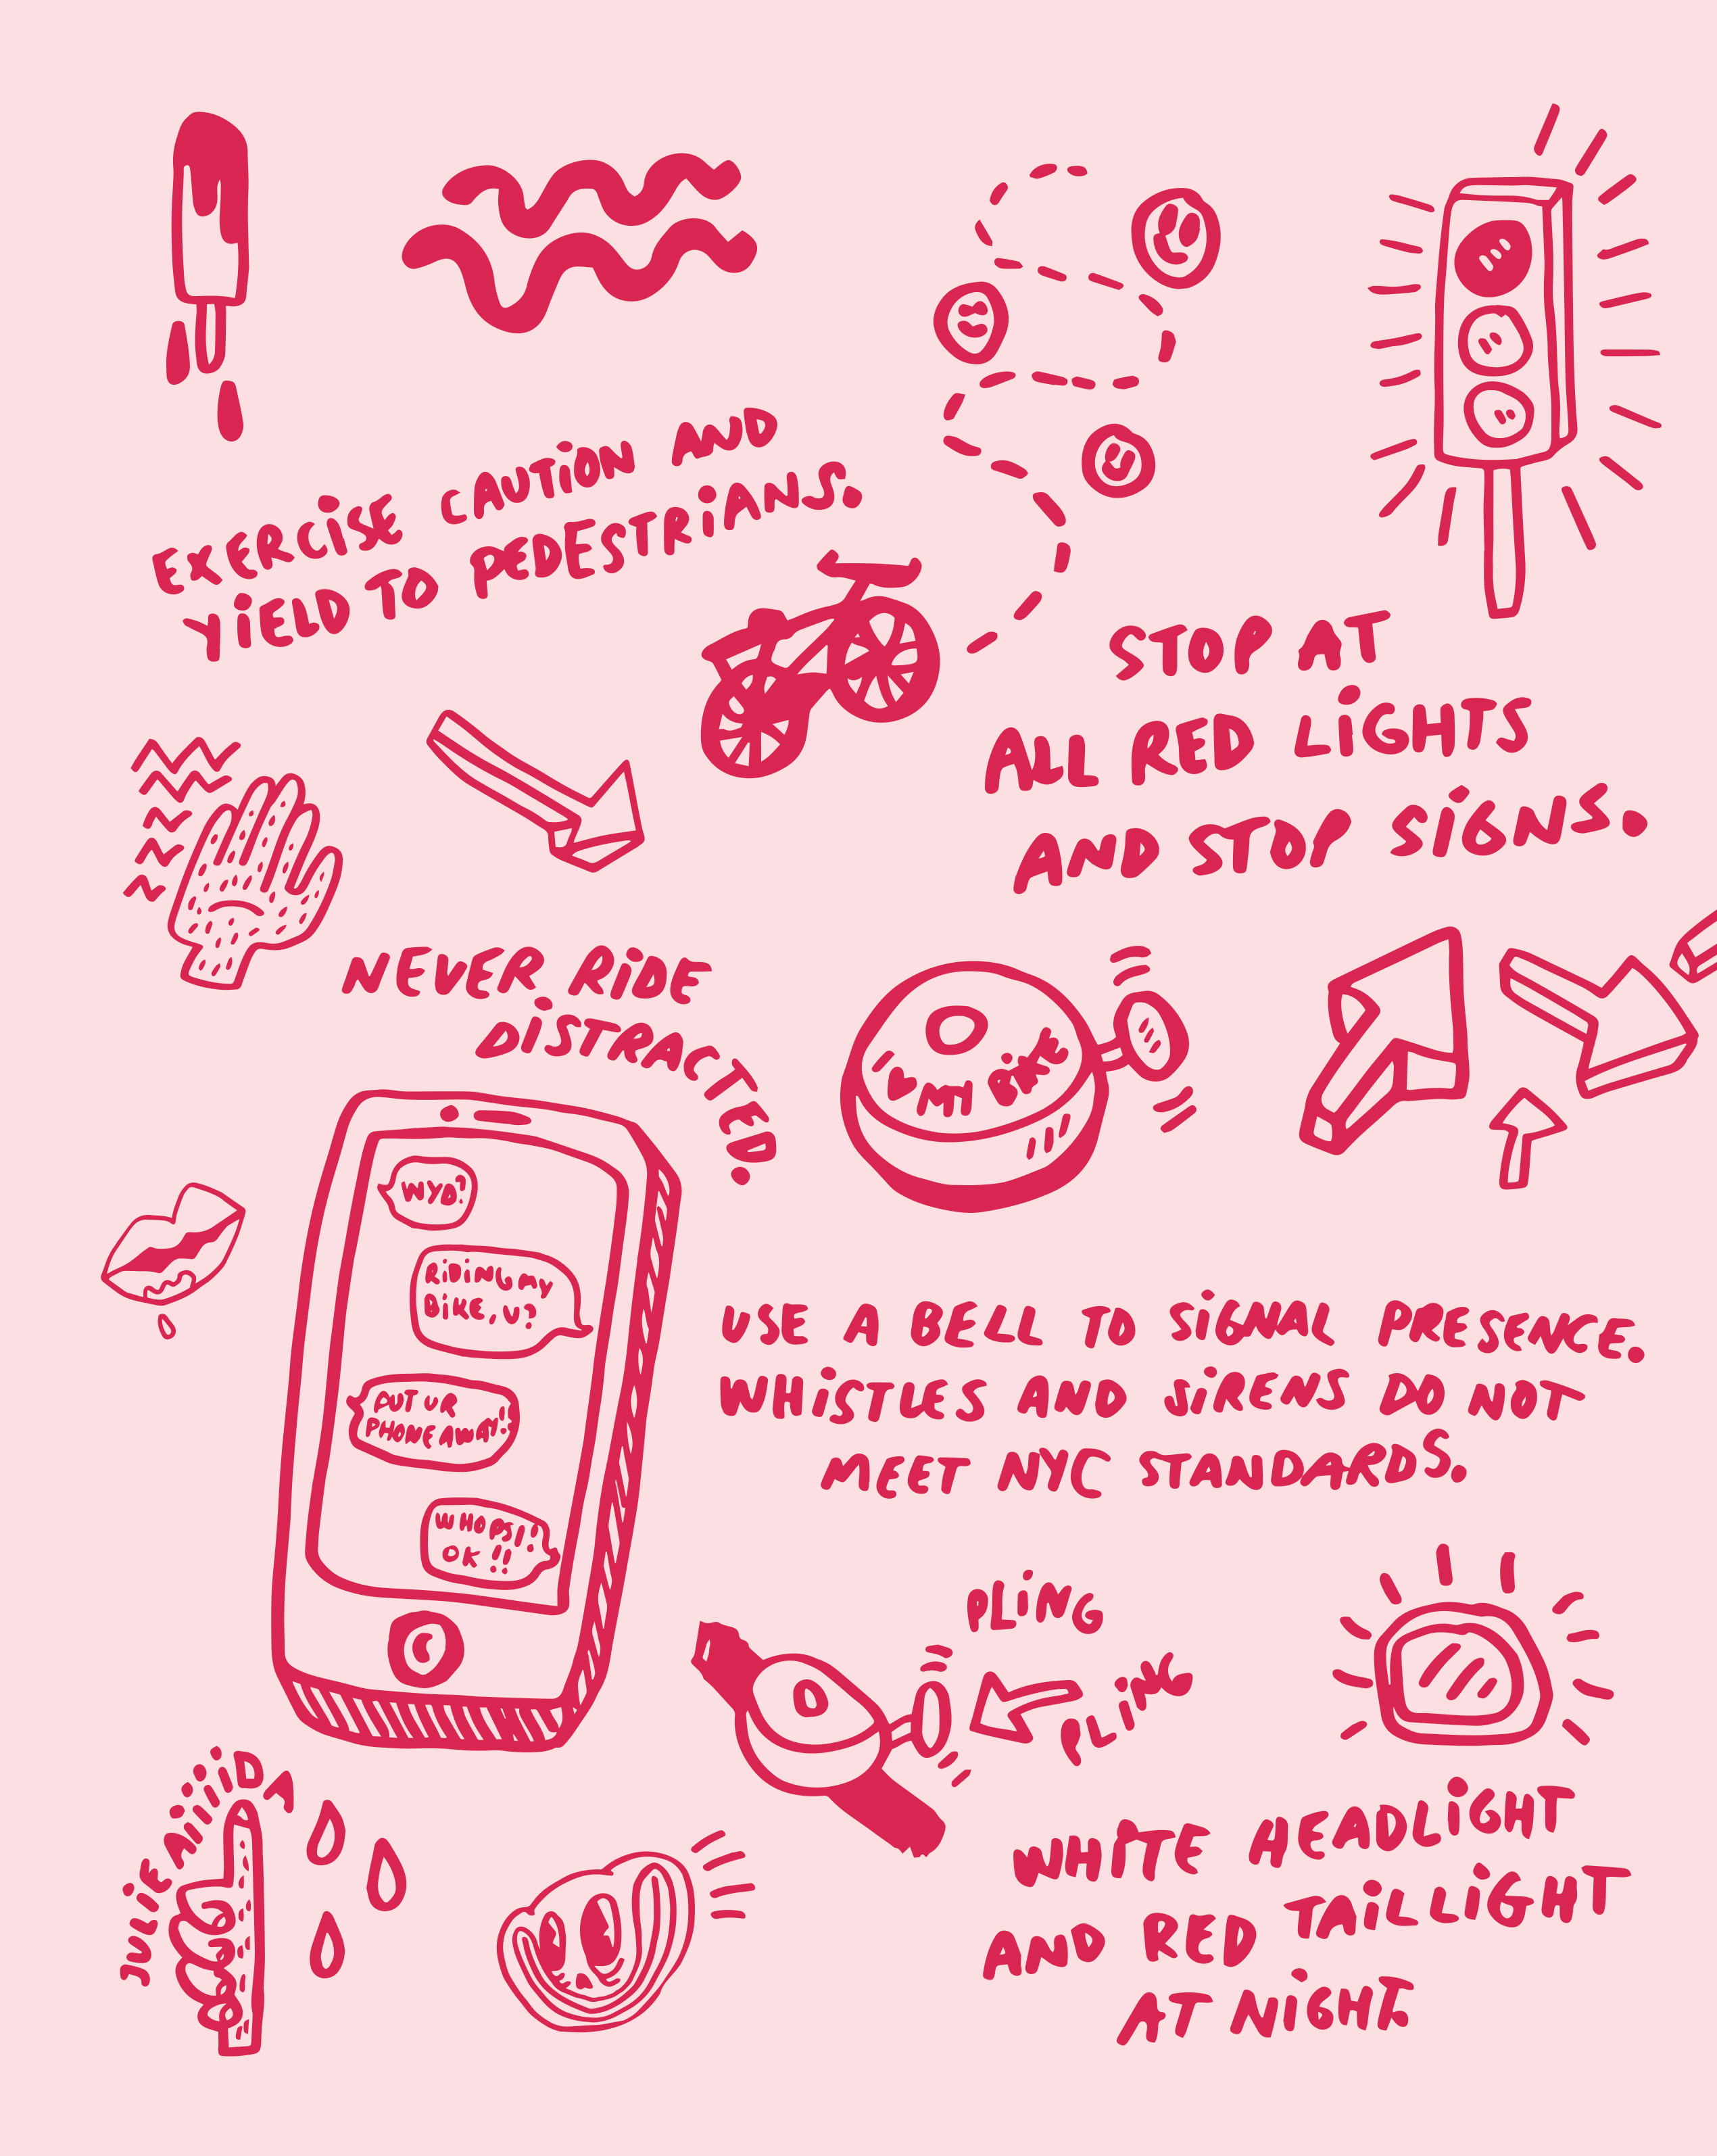 EXERCISE CAUTION AND
YIELD TO PEDESTRIANS.
STOP AT
ALL RED LIGHTS
AND STOP SIGNS.
NEVER RIDE
DISTRACTED.
I
L MY BIKE
WYD?
RIDING MY
BIKE, U?
PUT UR
PHONE AWAY!!
WHOPS!!
OK!!
USE A BELL TO SIGNAL PRESENCE.
WHISTLES AND SIRENS DO NOT
MEET NYC STANDARDS.
PLING
PLINK
WHITE HEADLIGHT
AND RED TAILLIGHT
AT NIGHT.